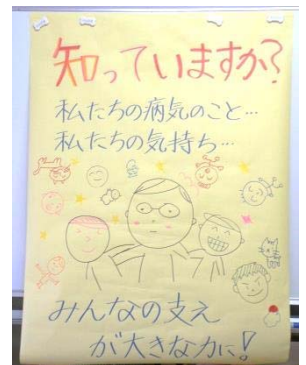 知っていますか?
私たちの病気のこと…
私たちの気持ち…
みんなの支え
が大きな力に!